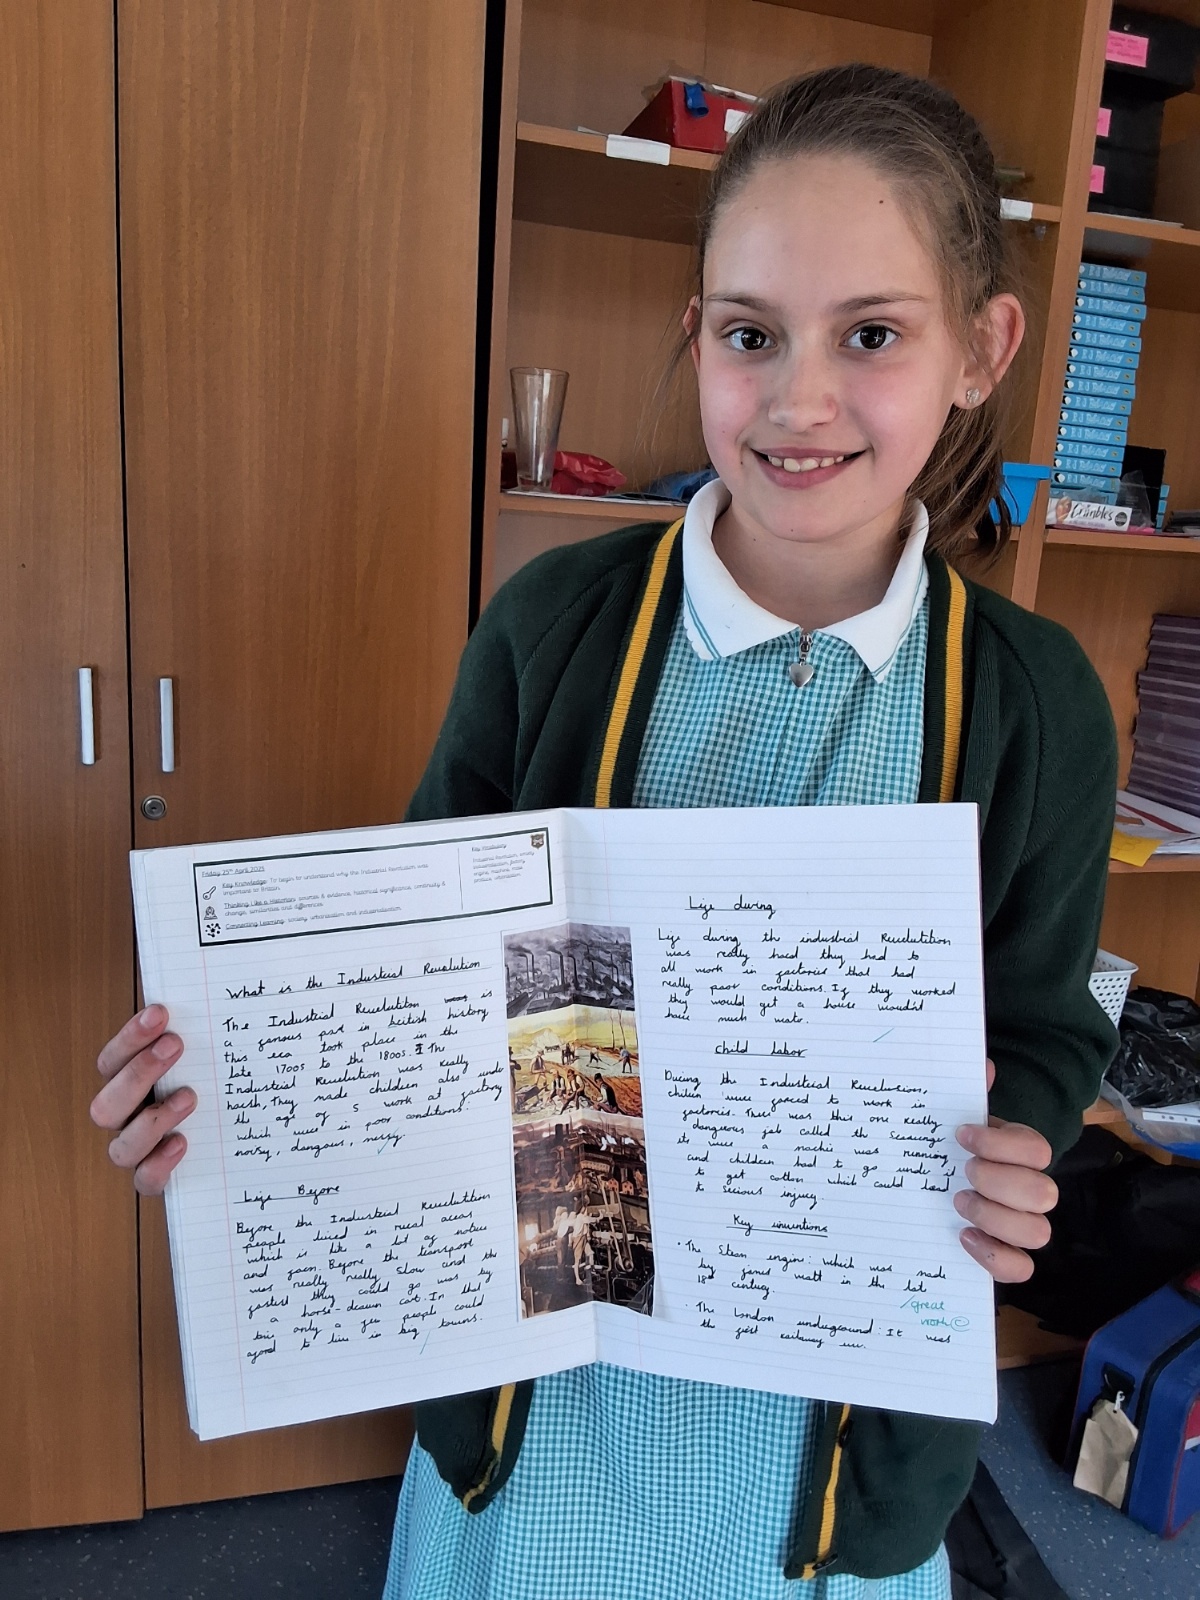 Friday 25th April 2025
Key Knowledge: To begin to understand why the Industrial Revolution was
important to Britain.
Thinking Like a Historian: sources & evidence, historical significance, continuity &
change, similarities and differences
Connecting Learning: society, urbanisation and industrialisation.
Key Vocabulary
Industrial Revolution, society,
industrialisation, factory,
engine, machine, mass
produce, urbanisation.
What is the Industrial Revolution
The Industrial Revolution is
a famous part in british history,
this era took place in the
late 1700s to the 1800s. The
Industrial Revolution was really
harsh, They made children also under
the age of 5 work at factory
which were in poor conditions:
noisy, dangous, messy.
Life Before
Before the Industrial Revolutition
people lived in rural areas
which is like a lot of nature
and farm. Before the transport
was really really slow and the
fastest they could go was by
a horse-drawn cart. In that
time only a few people could
aford to live in big towns.
Life during
Life during th industrial Revolutition
was really hard they had to
all work in factories that had
really poor conditions. If they worked
they would get a house would'nt
have much water.
Child Labor
During the Industrial Revolusion,
children were forced to work in
factories. There was this one really
dangerous job called th Scavenger
its were a machie was running
and children had to go under it
to get cotton which could lead
to serious injury.
Key inventions
• The Steam engin: which was made
by james watt in the lat
18th century.
great
work
• The London underground: It was
the first railway
Crimbles